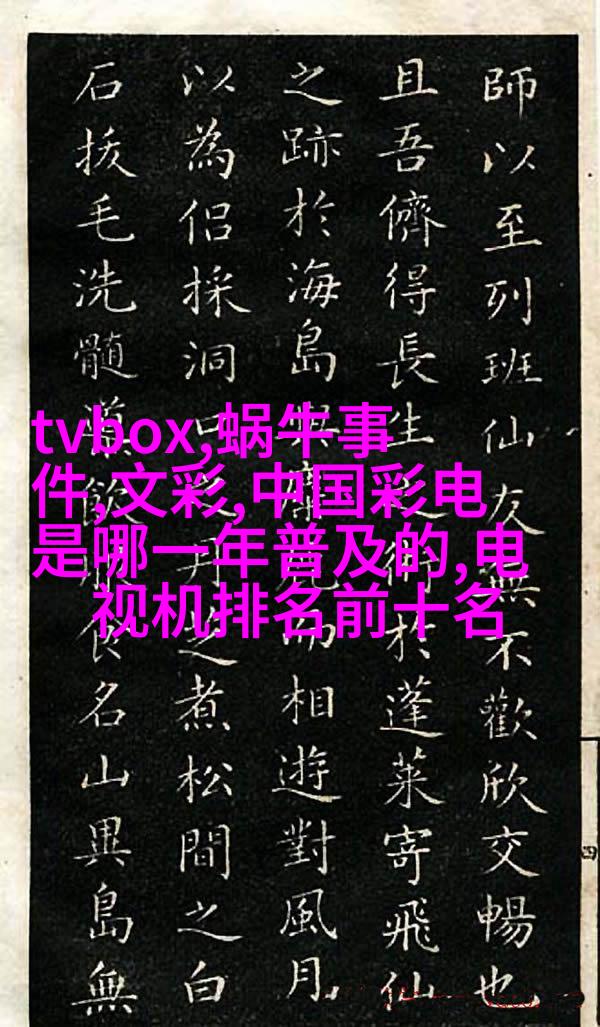 師以至列班仙友無不歡欣交暢也
且吾儕得長生之術於蓬萊寄飛仙
之跡於海島與相遊對風月
以為侶採洞口丹芝煮松間之白
石拔毛洗髓飲食名山異島無
tvbox,蜗牛事
件,文彩,中国彩电
是哪一年普及的,电
视机排名前十名
四